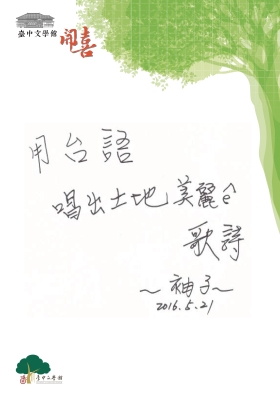 臺中文學館
開喜
用台語
唱出土地美麗ê
歌詩
～袖子～
2016.5.21
臺中文學館